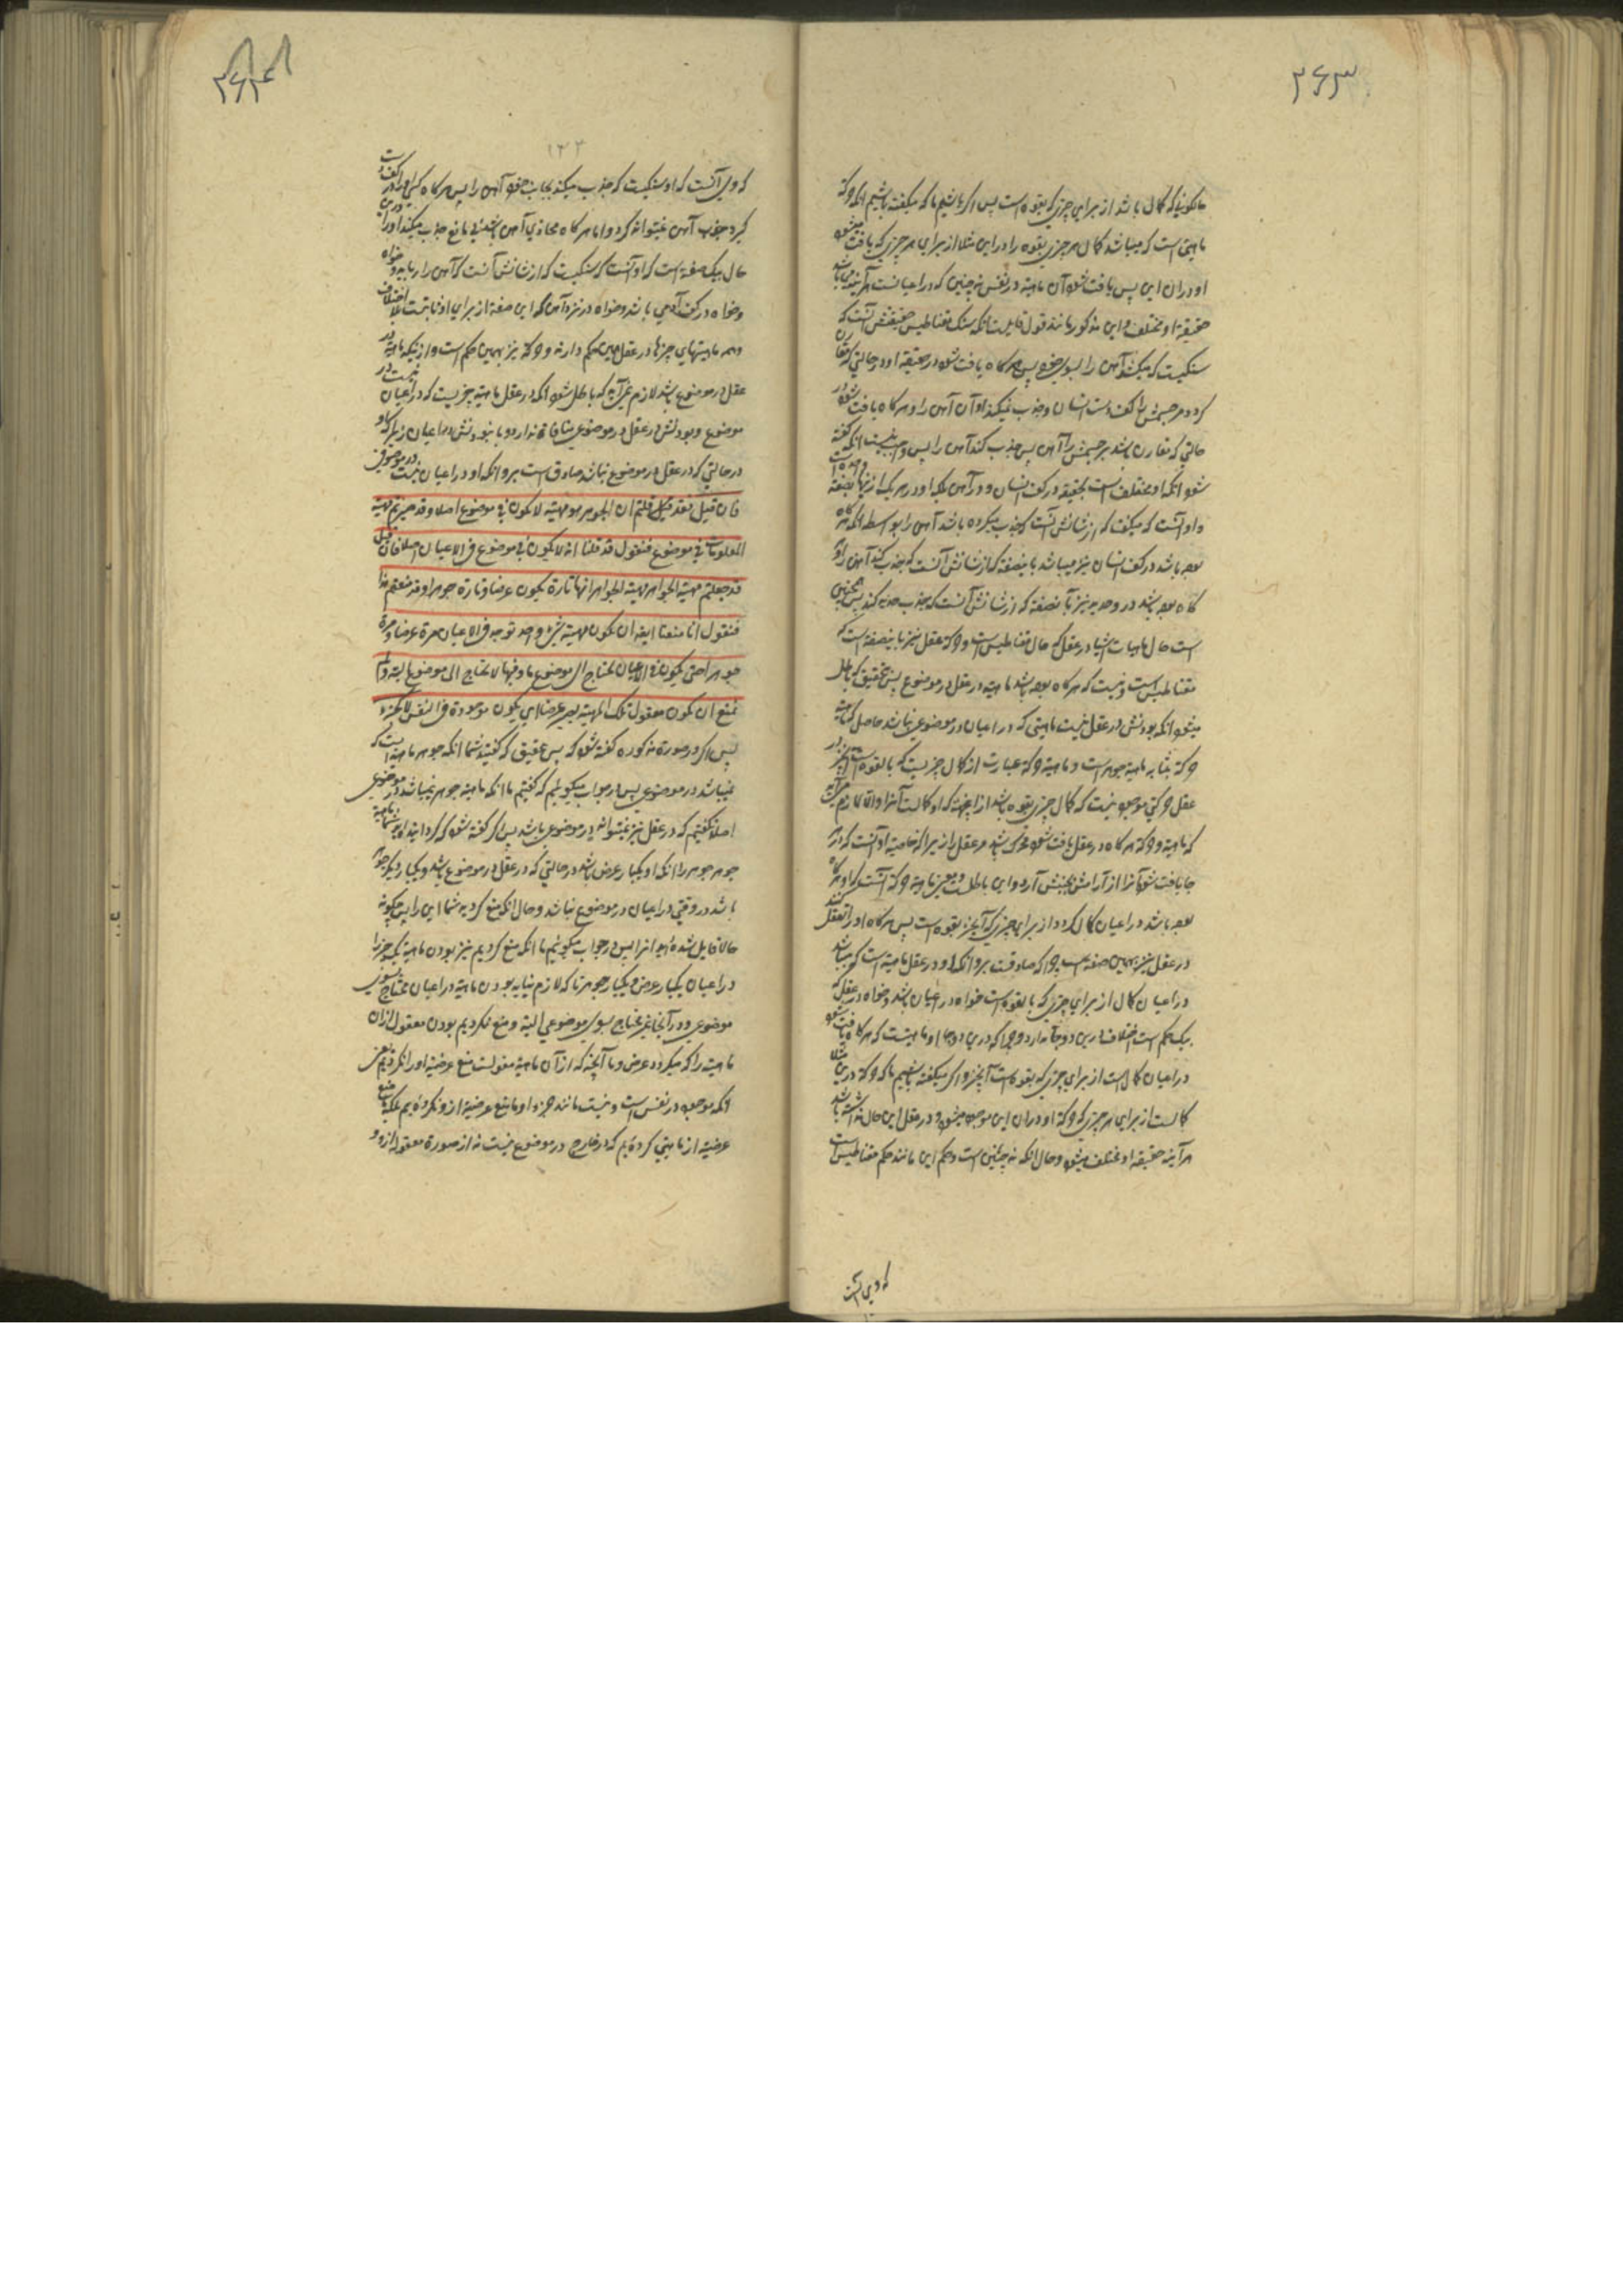 ۲۶۳
ما میگوئیم که کمال باشد از برای چیزی که بقوه است پس اگر باشیم ما که میگفته باشیم انکه حرکة
ماهیتی است که میباشد کمال هر چیزی بقوه را در این مثلا از برای هر چیزی که یافت میشود
او در ان این پس یافت شود آن ماهیة در نفس نه چنین که در اعیانست هر آینه می باشد
حقیقة او مختلف و این مذکور مانند قول قایلست انکه سنک مقناطیس حقیقتش آنست که
سنکیست که میکشد آهن را بسوی خود پس هر کاه یافت شود در حقیقة او در حالتی که مقارن
کردد مر جسمش را کف دست انسان و جذب نمیکند او آن آهن را و هر کاه یافت شود در
حالتی که مقارن باشد مر جسمش را آهن پس جذب کند آهن را پس واجب نیست انکه گفته
شود انکه او مختلف است بحقیقة در کف انسان و در آهن بلکه او در هر یک از اینها بصفة واحده است
و او آنست که میکفت که از شانش آنست که جذب میکرده باشد آهن را بواسطه انکه هر کاه
بوده باشد در کف انسان نیز میباشد باینصفة که از شانش آنست که جذب کند آهن را و هر
کاه بوده باشد در حدید نیز بآنصفة که از شانش آنست که جذب حدید کند پس همچنین
است حال ماهیات اشیا در عقل که حال مقناطیس است و حرکة عقل نیز باینصفة است که
مقناطیس است و نیست که هر کاه بوده باشد ماهیة در عقل در موضوع پس بتحقیق که باطل
میشود انکه بودنش در عقل نیست ماهیتی که در اعیان در موضوعی نباشد حاصل که ماهیة
حرکة مثابه ماهیة جوهر است و ماهیة حرکة عبارت از کمال چیزیست که بالقوه است و نیز در
عقل حرکتی موجود نیست که کمال چیزی بقوه باشد از اینجهة که او کمالست آنرا و الا لازم می آید
که ماهیة حرکة هر کاه در عقل یافت شود محرک باشد مر عقل را زیرا که خاصیة او آنست که در هر
جا یافت شود آنرا از آرامش بجنبش آرد و این باطلست و معنی ماهیة حرکة آنست که او هر کاه
بوده باشد در اعیان کمال کردد از برای چیزی که آنچیز بقوه است پس هر کاه او را تعقل کنند
در عقل نیز بهمین صفة است چرا که صادقست بر و انکه او در عقل ماهیة است که میباشد
در اعیان کمال از برای چیزی که بالقوه است خواه در اعیان باشد و خواه در عقل که
بیک حکم است اختلاف درین دو جا ندارد چرا که درین دو جا او ماهیتست که هر کاه یافت شود
در اعیان کمال است از برای چیزی که بقوه است آنچیز و اگر میگفته باشیم ما که حرکة درین مثلا
کمالست از برای هر چیزی که حرکة او در ان این موجود میشود و در عقل این حال نداشته باشد
هر آینه حقیقة او مختلف میشود و حال انکه نه چنین است و حکم این مانند حکم مقناطیس است
که وی آنست
۲۶۴
۱۲۳
که وی آنست که او سنکیست که جذب میکند بجانب خود آهن را پس هر کاه کسی او را در کف دست
گیرد جذب آهن نمیتواند کرد و اما هر کاه محاذی آهن باشد بی مانع جذب میکند او را درین
حال بیک صفة است که او آنست که سنکیست که از شانش آنست که آهن را رباید خواه
و خواه در کف آدمی باشد و خواه در نزد آهن که این صفة از برای او ثابتست بلا اختلاف
و همه ماهیتهای چیزها در عقل همین حکم دارند و حرکة نیز بهمین حکم است و از نیکه ماهیة در
عقل در موضوع باشد لازم نمی آید که باطل شود انکه در عقل ماهیة چیزیست که در اعیان نیست در
موضوع و بودنش در عقل در موضوعی منافاة ندارد و با نبودنش در اعیان زیرا که او
در حالتی که در عقل در موضوع نباشد صادق است بر و انکه او در اعیان نیست در موضوعی
فان قیل فقد قیل قلتم ان الجوهر هو مهیة لا یکون فی موضوع اصلا و قد صیرتم مهیة
المعلومات فی موضوع فنقول قد قلنا انه لا یکون فی موضوع فی الاعیان اصلا فان قیل
قد جعلتم مهیة الجواهر مهیة الجواهر انها تارة یکون عرضا و تارة جوهرا و قد منعتم هذا
فنقول انا منعنا ایضا ان یکون مهیة شیء واحد توجد فی الاعیان مرة عرضا و مرة
جوهرا حتی یکون فی الاعیان تحتاج الی موضوع ما و فیها لا تحتاج الی موضوع البتة و لم
نمنع ان یکون معقول تلک المهیة یصیر عرضا ای یکون موجودة فی النفس لا کجزء
پس اگر در صورة مذکوره گفته شود که پس بتحقیق که گفتید شما انکه جوهر ماهیة ایست که
نمیباشد در موضوعی پس در جواب میگوئیم که گفتیم ما انکه ماهیة جوهر نمیباشد در موضوعی
اصلا نگفتیم که در عقل نیز نمیتواند در موضوعی باشد پس اگر گفته شود که گردانیده اید شما ماهیة
جوهر جوهر را انکه او یکبار عرض باشد در حالتی که در عقل در موضوع باشد و یکبار دیگر جوهر
باشد در وقتی در اعیان در موضوع نباشد و حال انکه منع کردید شما این را پس چگونه
حالا قایل شده اید انرا پس در جواب میگوئیم ما انکه منع کردیم نیز بودن ماهیة یک چیز را
در اعیان یکبار عرض و یکبار جوهر تا که لازم نیاید بودن ماهیة در اعیان محتاج بسوی
موضوعی و در آنجا غیر محتاج بسوی موضوعی البتة و منع نکردیم بودن معقول ازان
ماهیة را که میکردد عرض و ما آنچه که از آن ماهیة معقولست منع عرضیة او را نکردیم یعنی
انکه موجود در نفس است و نیست مانند جزء او ما منع عرضیة ازو نکرده ایم بلکه منع
عرضیة از ماهیتی کرده ایم که در خارج در موضوع نیست نه از صورة معقوله ازو